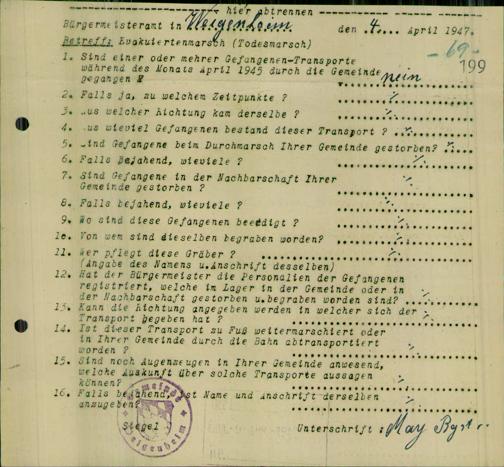 hier abtrennen
Bürgermeisteramt in Weigenheim den 4. April 1947.
Betreff: Evakuiertenmarsch (Todesmarsch)
- 69 -
199
1. Sind einer oder mehrer Gefangenen-Transporte
während des Monats April 1945 durch die Gemeinde
gegangen ? nein
2. Falls ja, zu welchem Zeitpunkte ? ./.
3. Aus welcher Richtung kam derselbe ? ./.
4. Aus wieviel Gefangenen bestand dieser Transport ? ./.
5. Sind Gefangene beim Durchmarsch Ihrer Gemeinde gestorben? ./.
6. Falls Bejahend, wieviele ? ./.
7. Sind Gefangene in der Nachbarschaft Ihrer
Gemeinde gestorben ? ./.
8. Falls bejahend, wieviele ? ./.
9. Wo sind diese Gefangenen beerdigt ? ./.
10. Von wem sind dieselben begraben worden? ./.
11. Wer pflegt diese Gräber ? ./.
(Angabe des Namens u.Anschrift desselben)
12. Hat der Bürgermeister die Personalien der Gefangenen
registriert, welche im Lager in der Gemeinde oder in
der Nachbarschaft gestorben u.begraben worden sind? ./.
13. Kann die Richtung angegeben werden in welcher sich der
Transport begeben hat ? ./.
14. Ist dieser Transport zu Fuß weitermarschiert oder
in Ihrer Gemeinde durch die Bahn abtransportiert
worden ? ./.
15. Sind noch Augenzeugen in Ihrer Gemeinde anwesend,
welche Auskunft über solche Transporte aussagen
können? ./.
16. Falls bejahend, ist Name und Anschrift derselben
anzugeben? ./.
Gemeinde
Weigenheim
Siegel
Unterschrift :